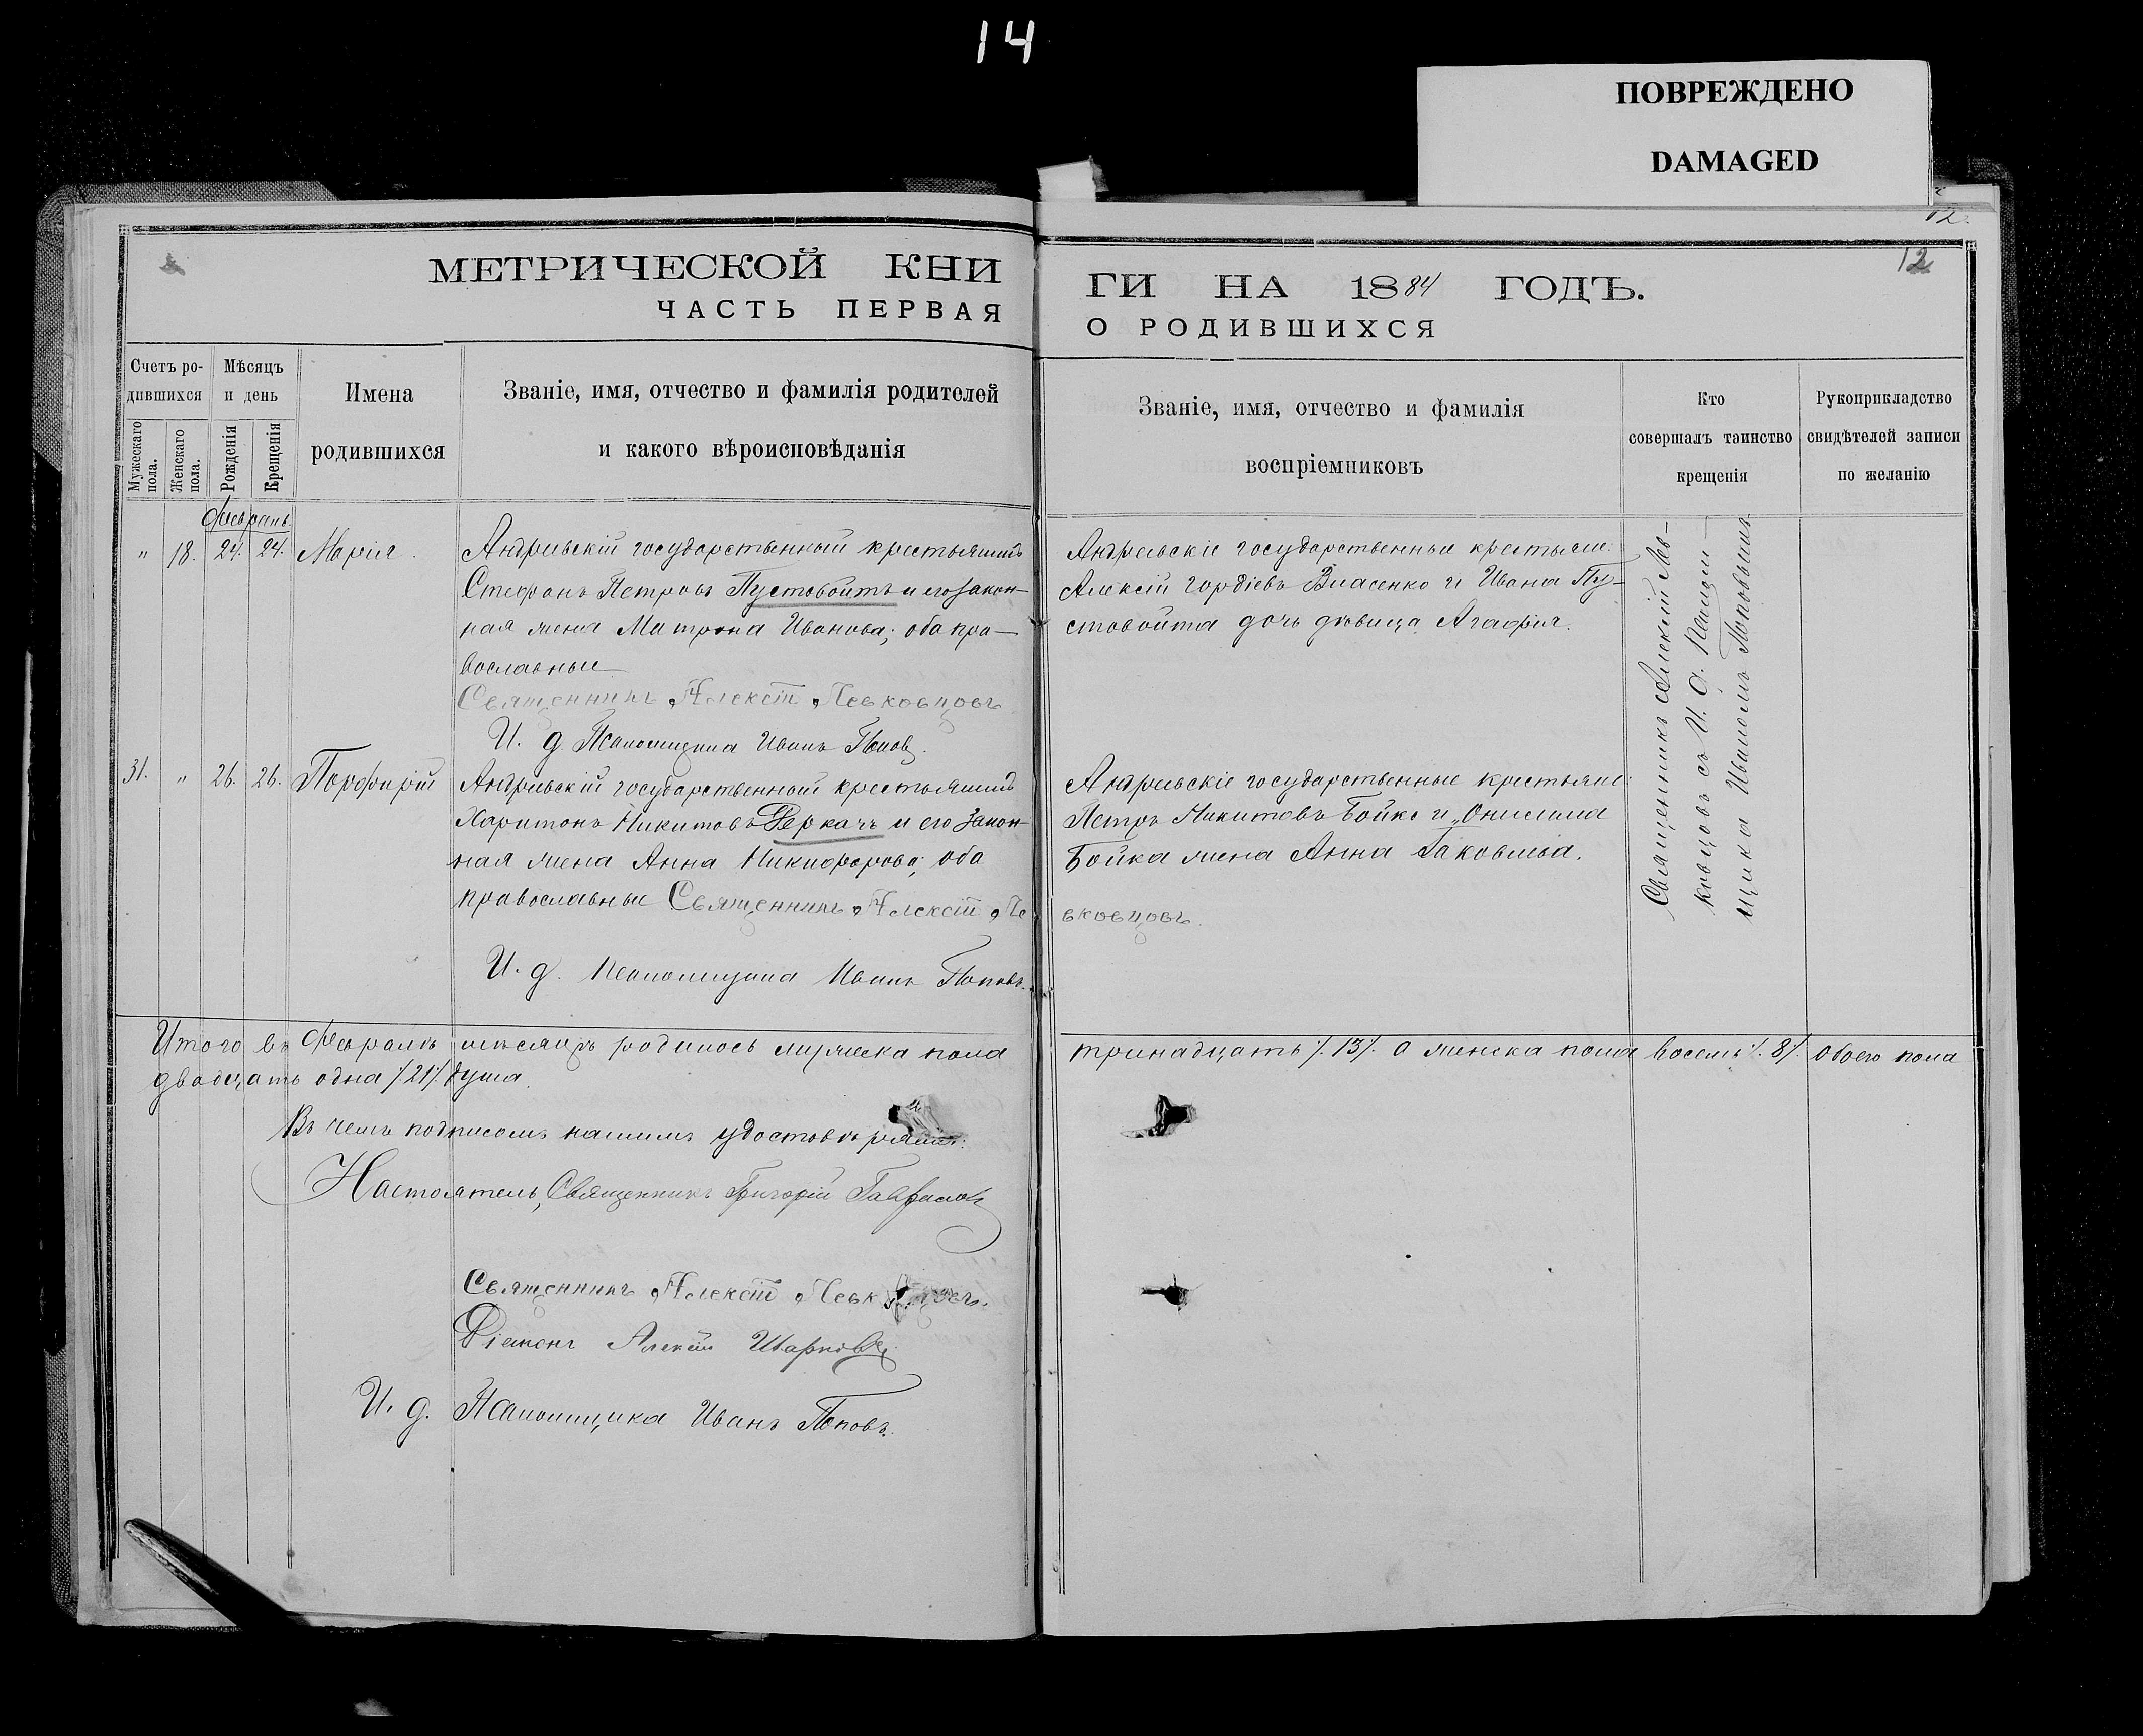 14
ПОВРЕЖДЕНО
DAMAGED
12
12
МЕТРИЧЕСКОЙ КНИ
ЧАСТЬ ПЕРВАЯ
ГИ НА 1884 ГОДЪ.
О РОДИВШИХСЯ
Счетъ ро-
дившихся
Мужескаго
пола.
Женскаго
пола.
Мѣсяцъ
и день
Рожденія
Крещенія
Имена
родившихся
Званіе, имя, отчество и фамилія родителей
и какого вѣроисповѣданія
Званіе, имя, отчество и фамилія
воспріемниковъ
Кто
совершалъ таинство
крещенія
Рукоприкладство
свидѣтелей записи
по желанію
" 18. 24. 24. Марія.
Андреевскій государственный крестьянинъ
Стефанъ Петровъ Пустовойтъ и его закон-
ная жена Матрона Иванова; оба пра-
вославные
Священникъ Алексій Левковцовъ
И. д. Псаломщика Иванъ Поповъ.
Андреевскіе государственные крестьяне:
Алексій Гордіевъ Власенко и Ивана Пу-
стовойта дочь дѣвица Агафія.
31. " 26. 26. Порфирій
Андреевскій государственный крестьянинъ
Харитонъ Никитовъ Деркачъ и его закон-
ная жена Анна Никифорова; оба
православные Священникъ Алексій Ле
вковцовъ.
И. д. Псаломщика Иванъ Поповъ.
Андреевскіе государственные крестьяне:
Петръ Никитовъ Бойко и Онисима
Бойка жена Анна Іаковлева.
Священникъ Алексій Лев-
ковцовъ съ И. д. Псалом-
щика Иваномъ Поповымъ
Итого въ Февралѣ мѣсяцѣ родилось мужеска пола тринадцать /.13/. а женска пола восемь /.8/. обоего пола
двадцать одна /.21/. душа.
Въ чемъ подписомъ нашимъ удостовѣряемъ:
Настоятель, Священникъ Григорій
Священникъ Алексій
Діаконъ Алексій
И. д. Псаломщика Иванъ Поповъ.